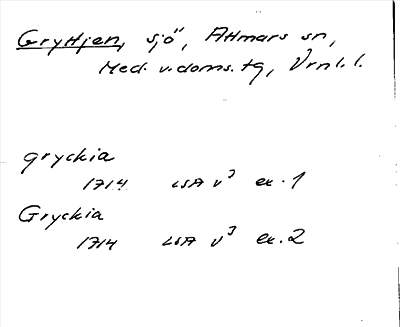 Gryttjen, sjö, Attmars sn,
Med. v. doms. tg, Vrnl. l.
gryckia
1714 LSA v³ ex. 1
Gryckia
1714 LSA v³ ex. 2